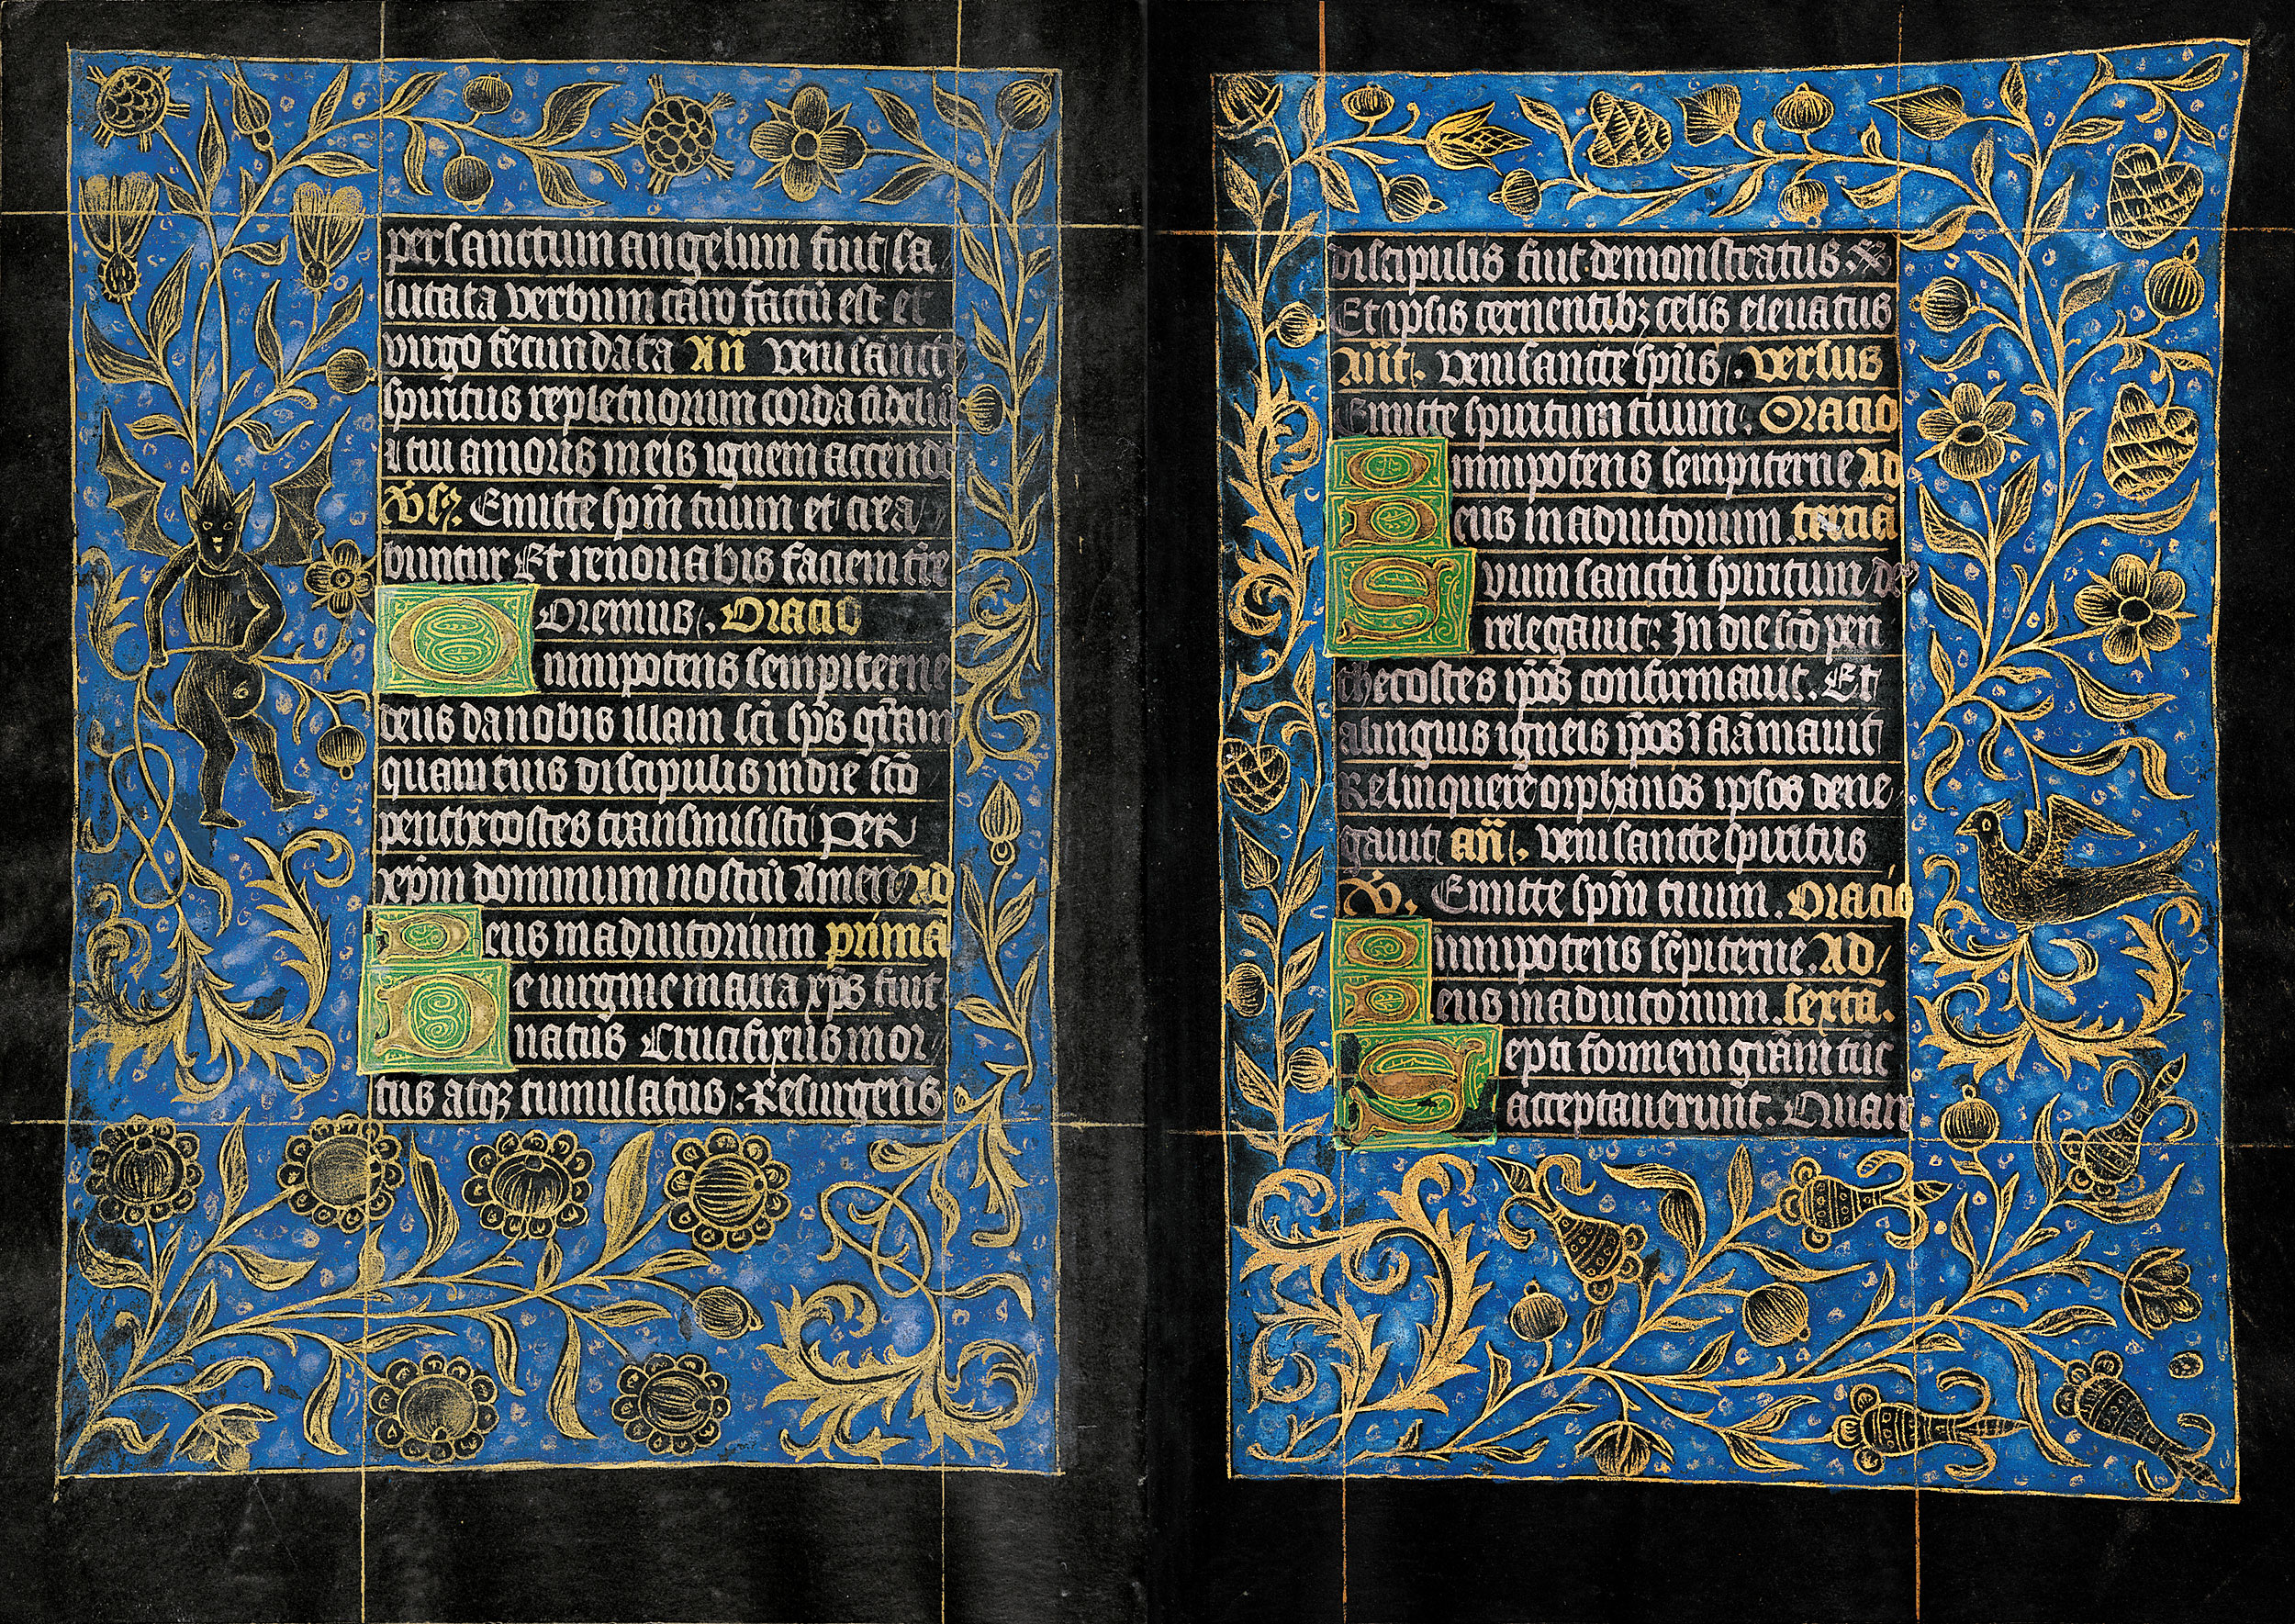 per sanctum angelum fuit sa
lutata verbum caro factū est et
virgo fecundata An̄ veni sancte
spiritus repletuorum corda fideliū
a tui amoris in eis ignem accende
Vs. Emitte spm̄ tuum et crea
buntur Et renovabis faciem t̄re
Oremus. Oracio
Omnipotens sempiterne
deus da nobis illam sc̄i sp̄s gr̄am
quam tuis discipulis in die sc̄o
penthecostes transmisisti Per
xp̄m dominum nostrū Amen Ad
Deus in adiutorium prima
De virgine maria xp̄s fuit
natus Crucifixus mor
tus atqꝫ tumulatus: Resurgens
discipulis fuit demonstratus.
Et ipsis cernentibꝫ celis elevatus
An̄t. veni sancte sp̄us. versus
Emitte spiritum tuum. Oracio
Omnipotens sempiterne Ad
Deus in adiutorium tercia
Suum sanctū spiritum de
relegavit: In die sc̄o pen
thecostes ip̄os confirmavit. Et
a linguis igneis ip̄os ī flāmavit
Relinquere orphanos ipsos dene
gavit an̄. veni sancte spiritus
V. Emitte spm̄ tuum. Oracio
Omnipotens sēpiterne. Ad
Deus in adiutorium. sexta.
Septi formem gr̄am tūc
acceptaverunt. Quare